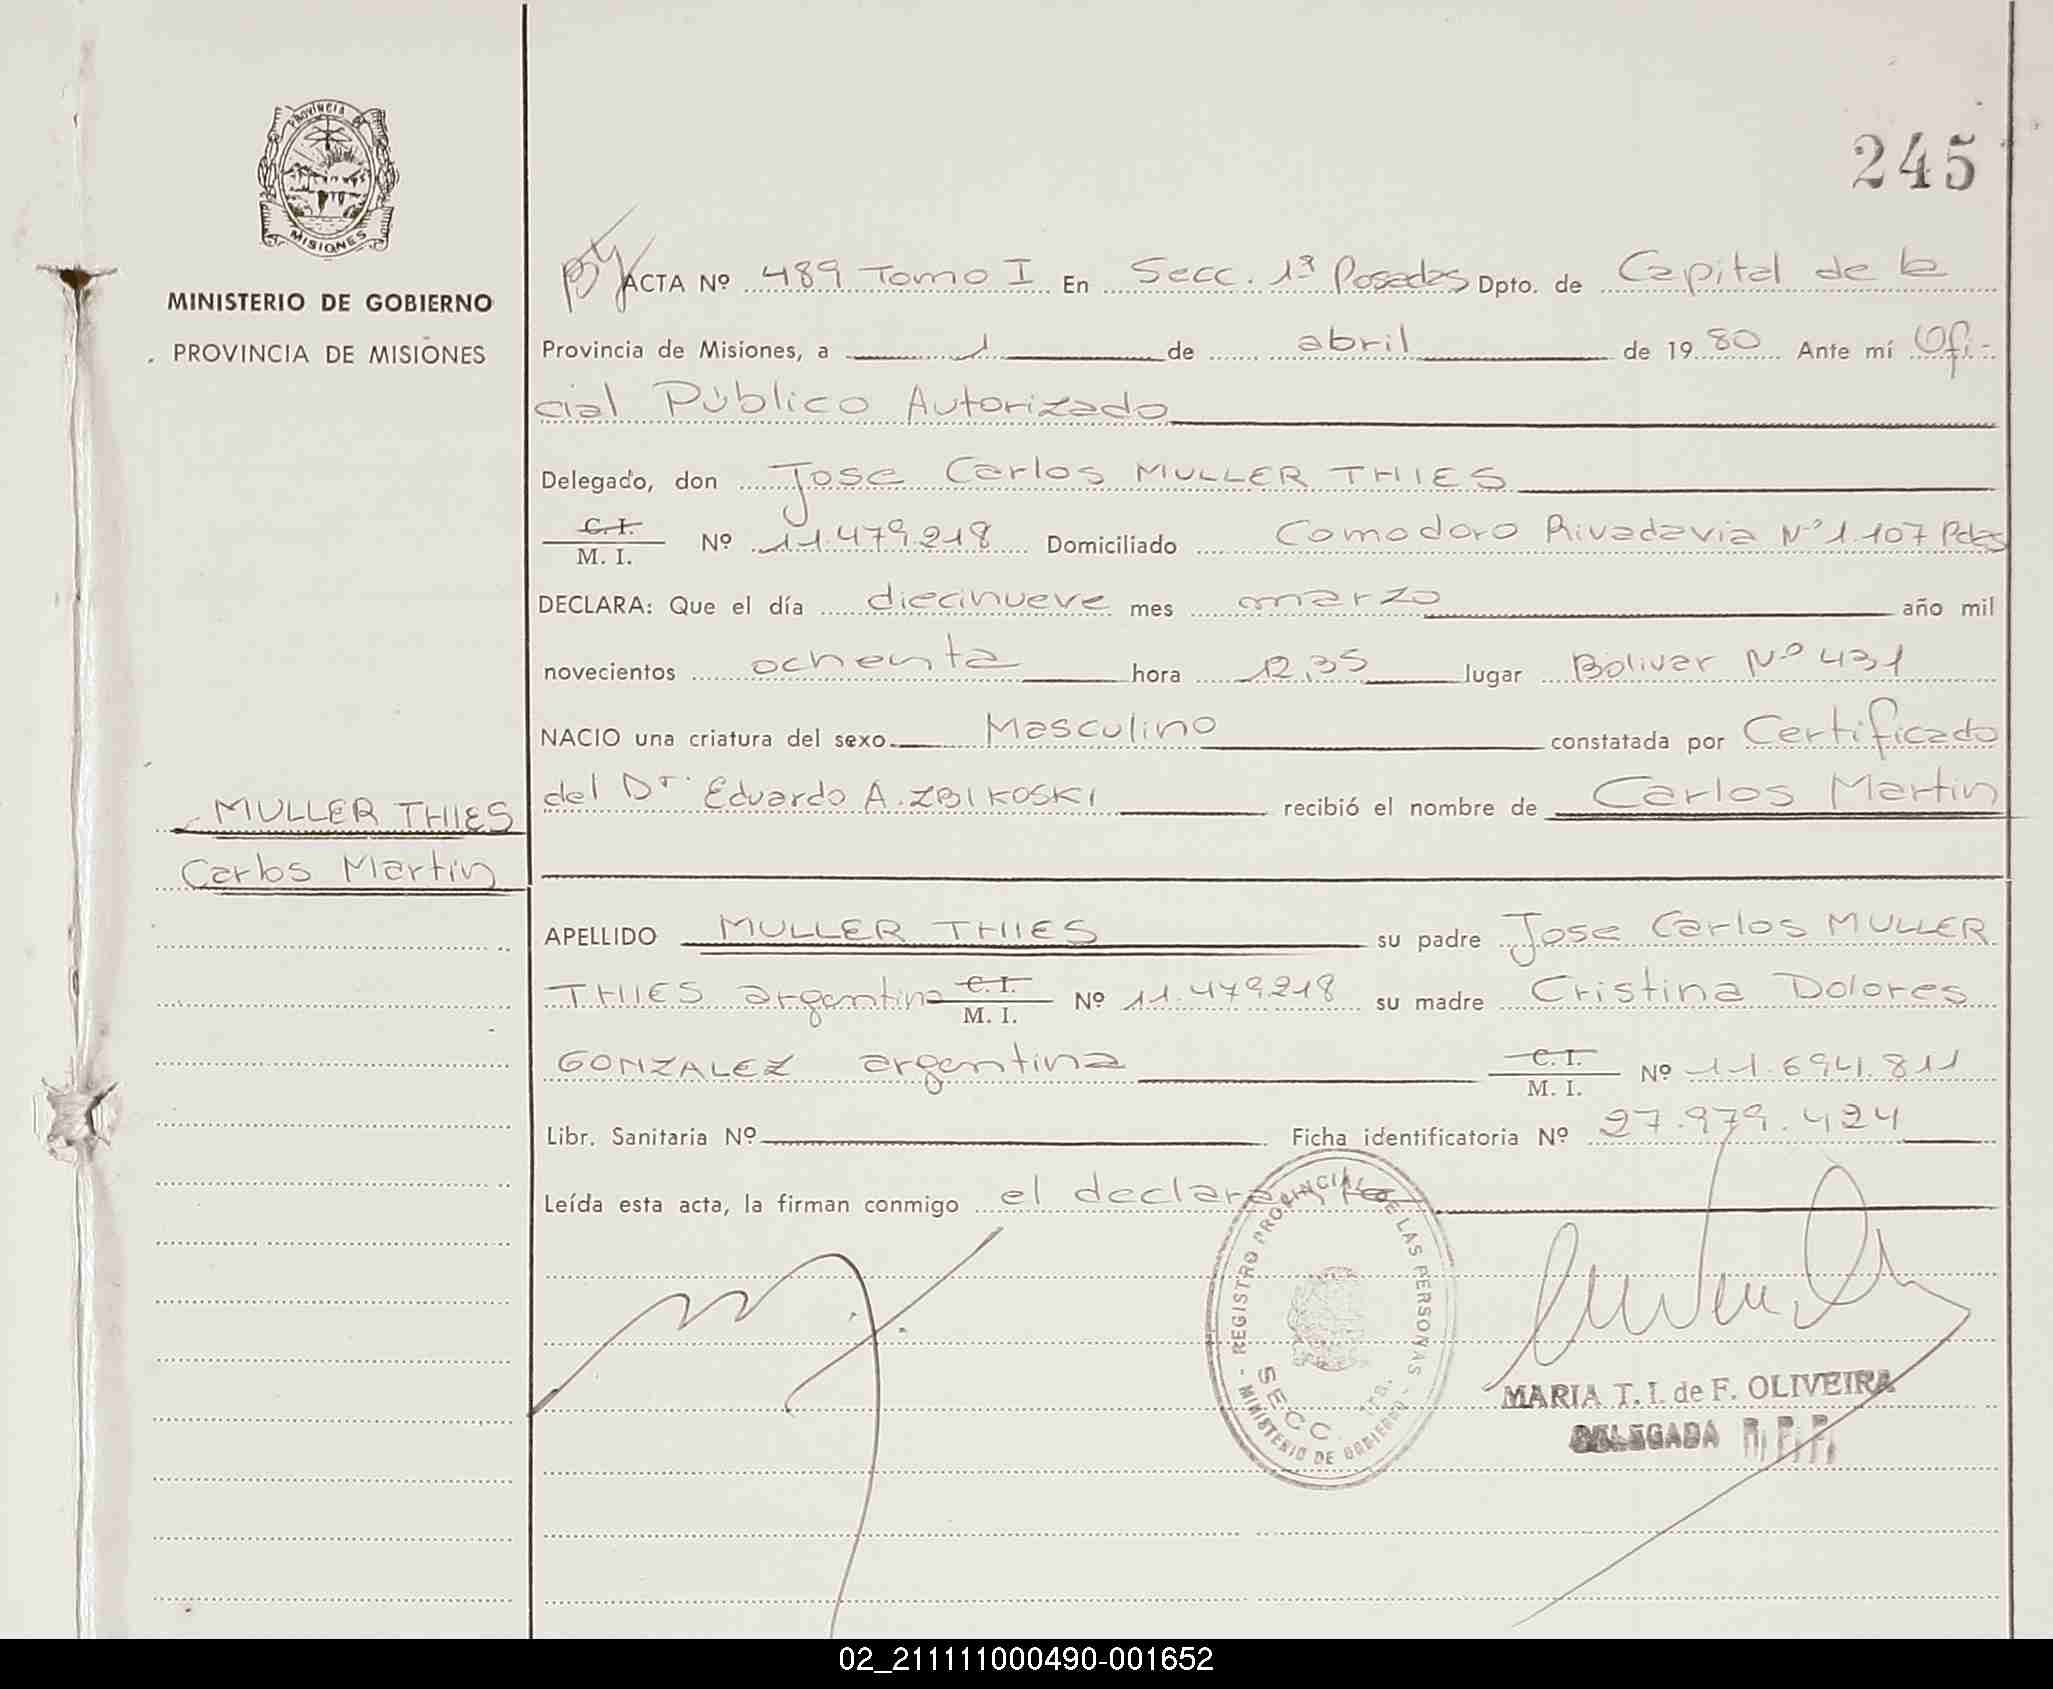 PROVINCIA DE
MISIONES
MINISTERIO DE GOBIERNO
PROVINCIA DE MISIONES
245
ACTA Nº 489 Tomo I En Secc. 1ª Posadas Dpto. de Capital de la
Provincia de Misiones, a 1 de abril de 1980 Ante mí Ofi-
cial Público Autorizado
Delegado, don Jose Carlos MULLER THIES
C.I.
M. I. Nº 11.479.218 Domiciliado Comodoro Rivadavia Nº 1.107 Pdas
DECLARA: Que el día diecinueve mes marzo año mil
novecientos ochenta hora 12,35 lugar Bolivar Nº 431
NACIO una criatura del sexo Masculino constatada por Certificado
del Dr. Eduardo A. ZBIKOSKI recibió el nombre de Carlos Martin
MULLER THIES
Carlos Martin
APELLIDO MULLER THIES su padre Jose Carlos MULLER
THIES argentino C.I. M. I. Nº 11.479218 su madre Cristina Dolores
GONZALEZ argentina C.I. M. I. Nº 11.694.811
Libr. Sanitaria Nº Ficha identificatoria Nº 27.979.424
Leída esta acta, la firman conmigo el declarante
REGISTRO PROVINCIAL DE LAS PERSONAS
SECC. 1ra.
MINISTERIO DE GOBIERNO
MARIA T. I. de F. OLIVEIRA
DELEGADA R. P. P.
02_211111000490-001652